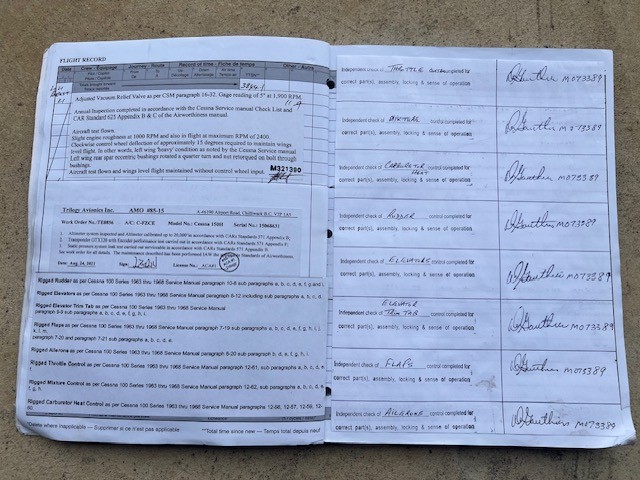 FLIGHT RECORD
Date Crew - Équipage Journey - Route Record of time - Fiche de temps Other - Autre
Adjusted Vacuum Relief Valve as per CSM paragraph 16-32. Gage reading of 5" at 1,900 RPM.
Annual Inspection completed in accordance with the Cessna Service manual Check List and
CAR Standard 625 Appendix B & C of the Airworthiness manual.
Aircraft test flown.
Slight engine roughness at 1000 RPM and also in flight at maximum RPM of 2400.
Clockwise control wheel deflection of approximately 15 degrees required to maintain wings
level flight. In other words, left wing 'heavy' condition as noted by the Cessna Service manual
Left wing rear spar eccentric bushings rotated a quarter turn and out retorqued on built through
bushings.
Aircraft test flown and wings level flight maintained without control wheel input.
M321380
Trilogy Avionics Inc. AMO #85-15 Airport Road, Chilliwack B.C. V2P 1A5
Work Order No.: A/C: C-FZCE Model No.: Cessna 150H Serial No.: 15068631
1. Altimeter system inspected and Altimeter calibrated up to 20,000' in accordance with CARs Standards 571 Appendix B;
2. Transponder with Encoder performance test carried out in accordance with CARs Standards 571 Appendix F;
3. Static pressure system leak test carried out serviceable in accordance with CARs Standards 571 Appendix
See work order for all details. The maintenance described has been performed IAW the Standards of Airworthiness
Date: Aug. 24, 2021 Sign: License No.:
Rigged Rudder as per Cessna 100 Series 1963 thru 1968 Service Manual paragraph 10-8 sub paragraphs a, b, c, d, e, f, g and
Rigged Elevators as per Cessna 100 Series 1963 thru 1968 Service Manual paragraph 8-12 including sub paragraphs a, b, c, d, e,
Rigged Elevator Trim Tab as per Cessna 100 Series 1963 thru 1968 Service Manual
paragraph 9-8 sub paragraphs a, b, c, d, e, f, g, h, i.
Rigged Flaps as per Cessna 100 Series 1963 thru 1968 Service Manual paragraph 7-19 sub paragraphs a, b, c, d, e, f, g, h, i, j,
k, l, m,
paragraph 7-20 and paragraph 7-21 sub paragraphs a, b, c, d, e.
Rigged Ailerons as per Cessna 100 Series 1963 thru 1968 Service Manual paragraph 6-20 sub paragraph b, d, e, f, g, h, i.
Rigged Throttle Control as per Cessna 100 Series 1963 thru 1968 Service Manual paragraph 12-61, sub paragraphs a, b, c, d, e,
Rigged Mixture Control as per Cessna 100 Series 1963 thru 1968 Service Manual paragraph 12-62, sub paragraphs a, b, c, d, e,
f, g, h.
Rigged Carburetor Heat Control as per Cessna 100 Series 1963 thru 1968 Service Manual paragraph 12-56, 12-57, 12-59, 12-
60.
*Delete where inapplicable — Supprimer si ce n'est pas applicable **Total time since new — Temps total depuis neuf
Independent check of THROTTLE control completed for
correct part(s), assembly, locking & sense of operation
D Gauthier M073389
Independent check of control completed for
correct part(s), assembly, locking & sense of operation
D Gauthier M073389
Independent check of CARBURETOR HEAT control completed for
correct part(s), assembly, locking & sense of operation
D Gauthier M073389
Independent check of RUDDER control completed for
correct part(s), assembly, locking & sense of operation
D Gauthier M073389
Independent check of ELEVATORS control completed for
correct part(s), assembly, locking & sense of operation
D Gauthier M073389
Independent check of ELEVATOR TRIM TAB control completed for
correct part(s), assembly, locking & sense of operation
D Gauthier M073389
Independent check of FLAPS control completed for
correct part(s), assembly, locking & sense of operation
D Gauthier M073389
Independent check of AILERONS control completed for
correct part(s), assembly, locking & sense of operation
D Gauthier M073389